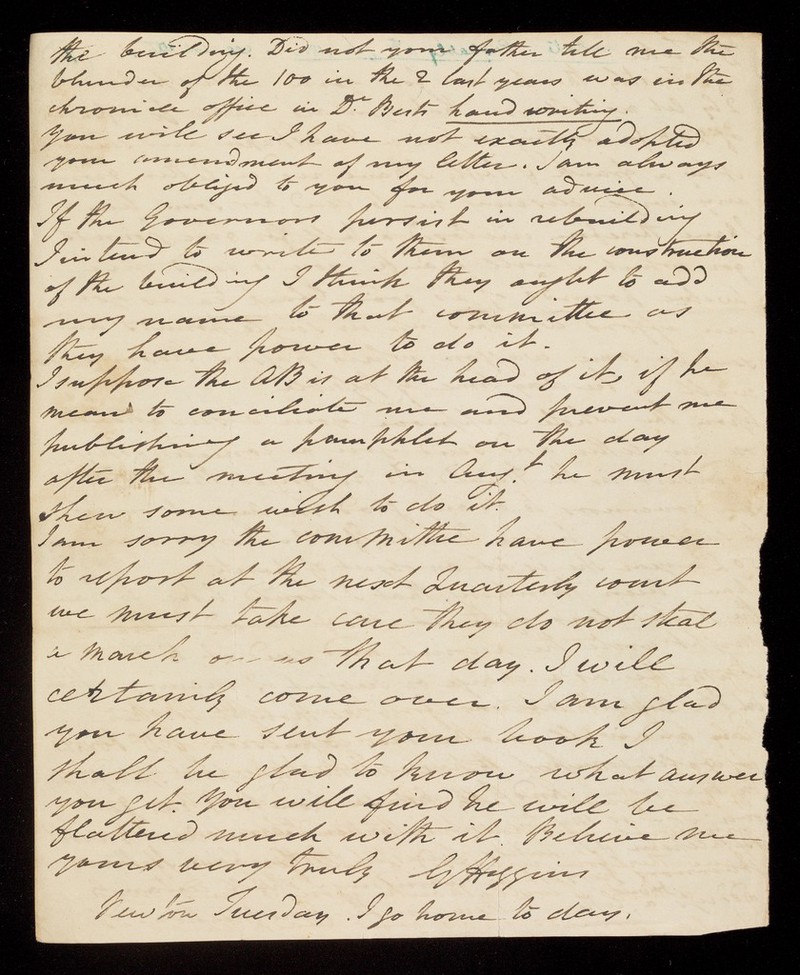 the building. Did not your father tell me the
blunder of the 100 in the 2 last years was in the
chronicle office in Dr. Bests hand writing.
You will see I have not exactly adopted
your amendment of my letter. I am always
much obliged to you for your advice.
If the Governors persist in rebuilding
I intend to write to them on the construction
of the building I think they ought to add
my name to that committee as
they have power to do it.
I suppose the AB is at the head of it, if he
mean to conciliate me and prevent me
publishing a pamphlet on the day
after the meeting in Augt. he must
shew some wish to do it.
I am sorry the committee have power
to report at the next Quarterly court
we must take care they do not steal
a march on us that day. I will
certainly come over. I am glad
you have sent your book I
shall be glad to know what answer
you get. You will find he will be
flattered much with it. Believe me
yours very truly G Higgins
Tuesday. I go home to day.